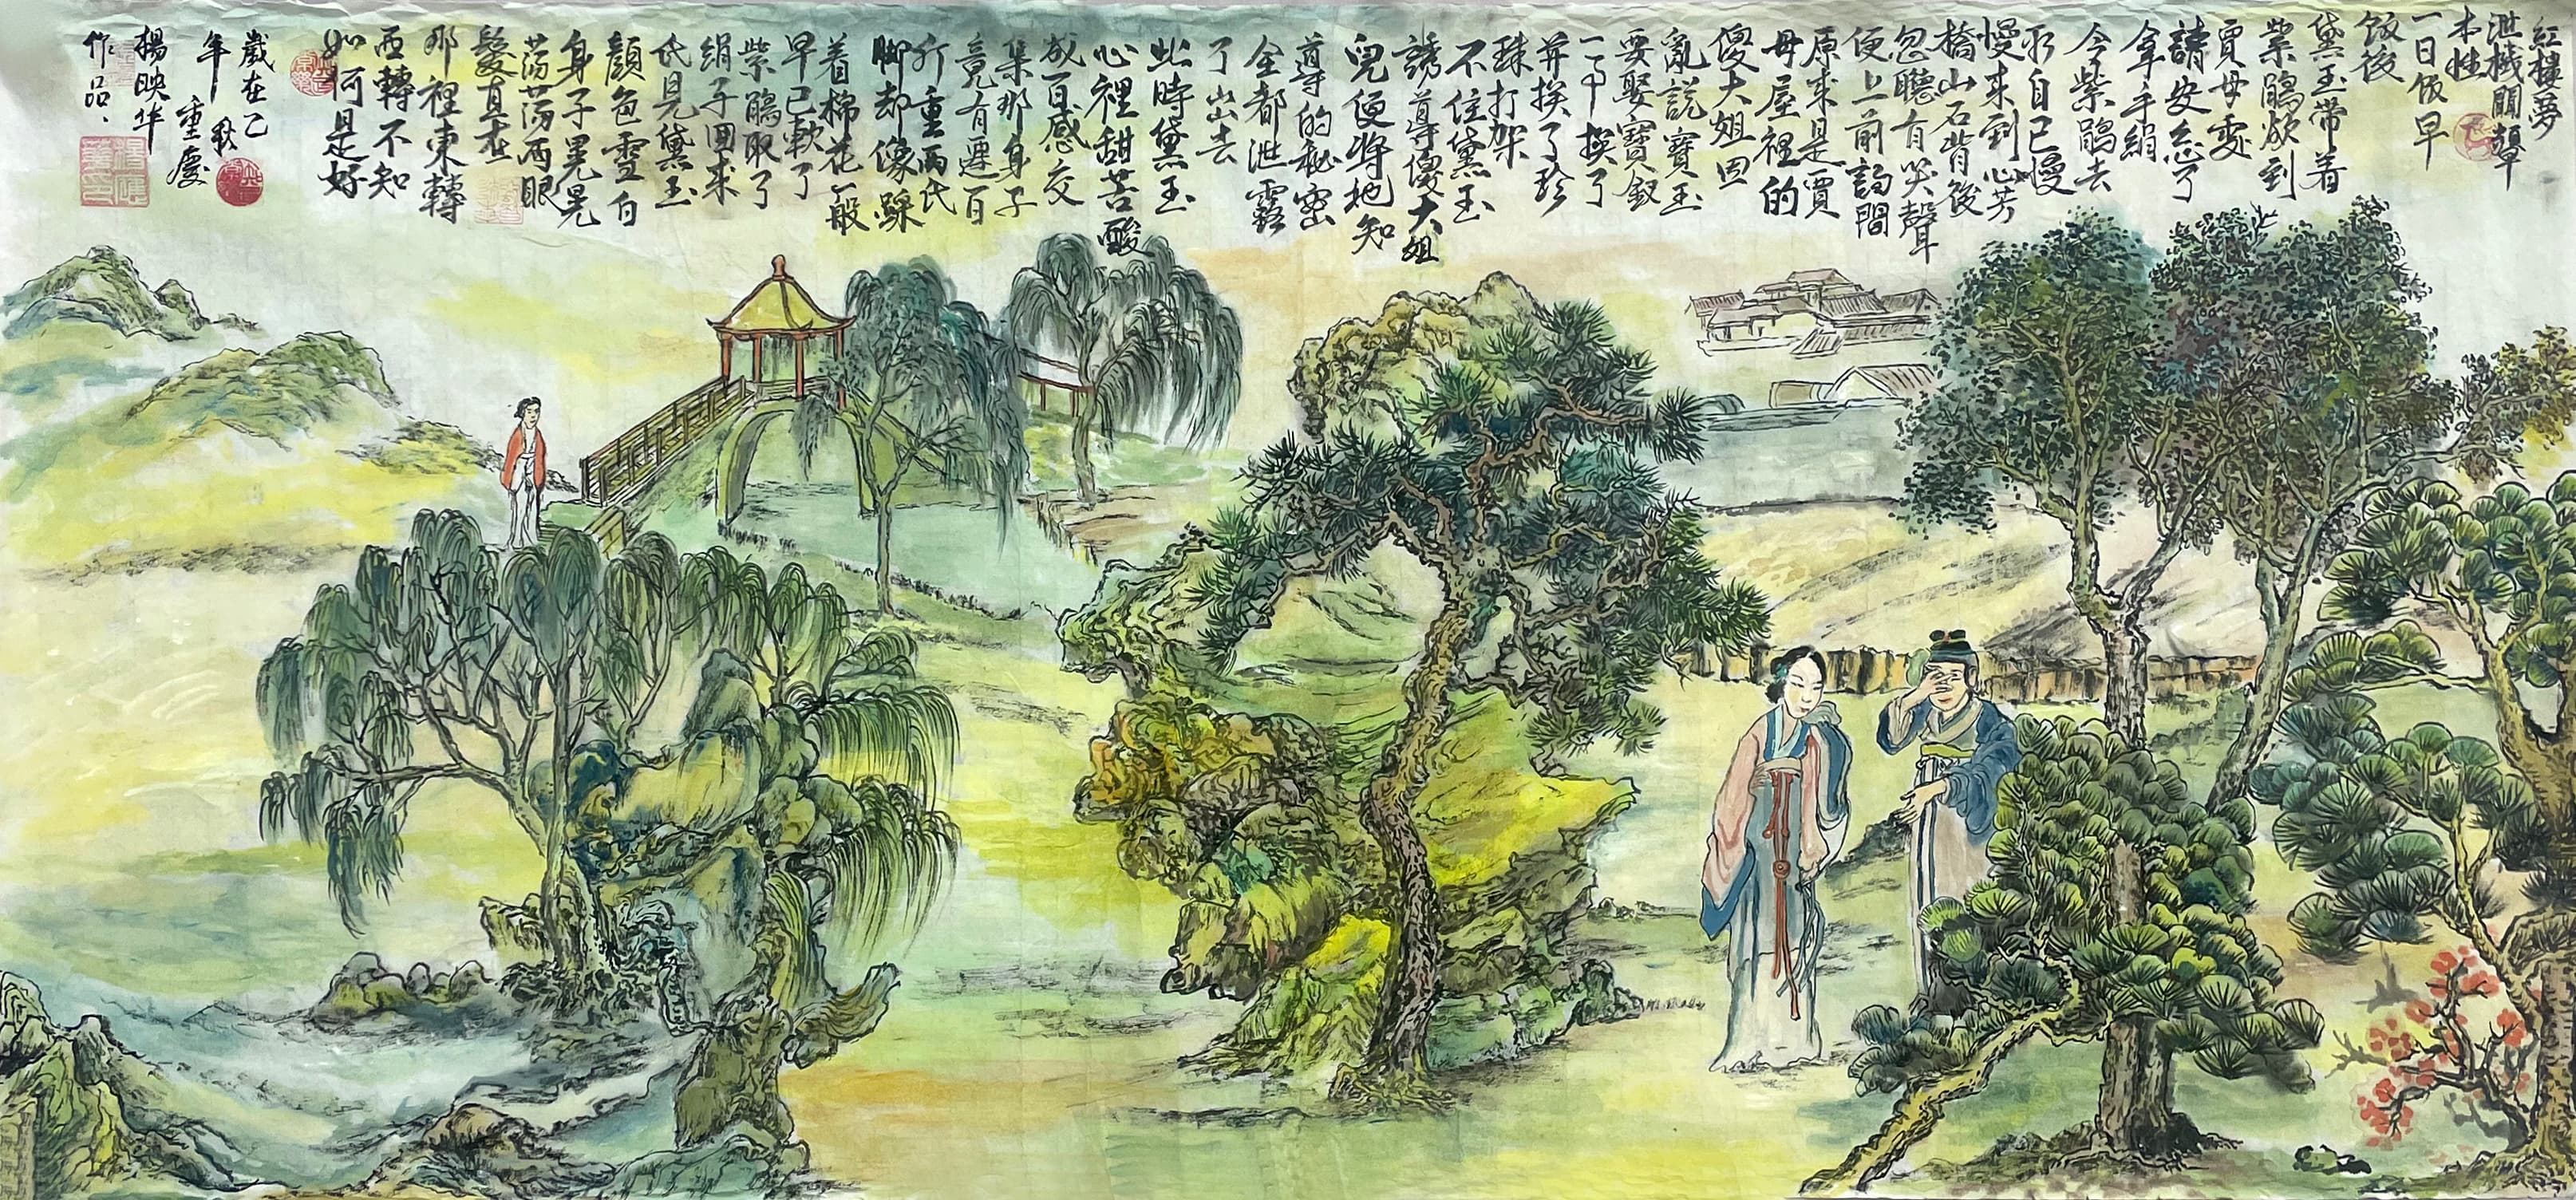 紅樓夢
泄機關顰
本性
一日飯早
飯後
黛玉带着
紫鵑欲到
賈母處
請安忘了
拿手絹
令紫鵑去
取自己慢
慢来到沁芳
橋山石背後
忽聽有哭聲
便上前詢問
原来是賈
母屋裡的
傻大姐因
亂説寶玉
要娶寶釵
一事挨了
并挨了珍
珠打架
不住黛玉
誘導傻大姐
兒便將她知
導的秘密
全都泄露
了出去
此時黛玉
心裡甜苦酸
成百感交
集那身子
竟有遲百
斤重兩
脚却像踩
着棉花一般
早已軟了
紫鵑取了
絹子回来
見黛玉
顏色雪白
身子晃晃
蕩蕩两眼
髮直在
那裡東轉
西轉不知
如何是好
歲在乙
年秋
重慶
楊映华
作品